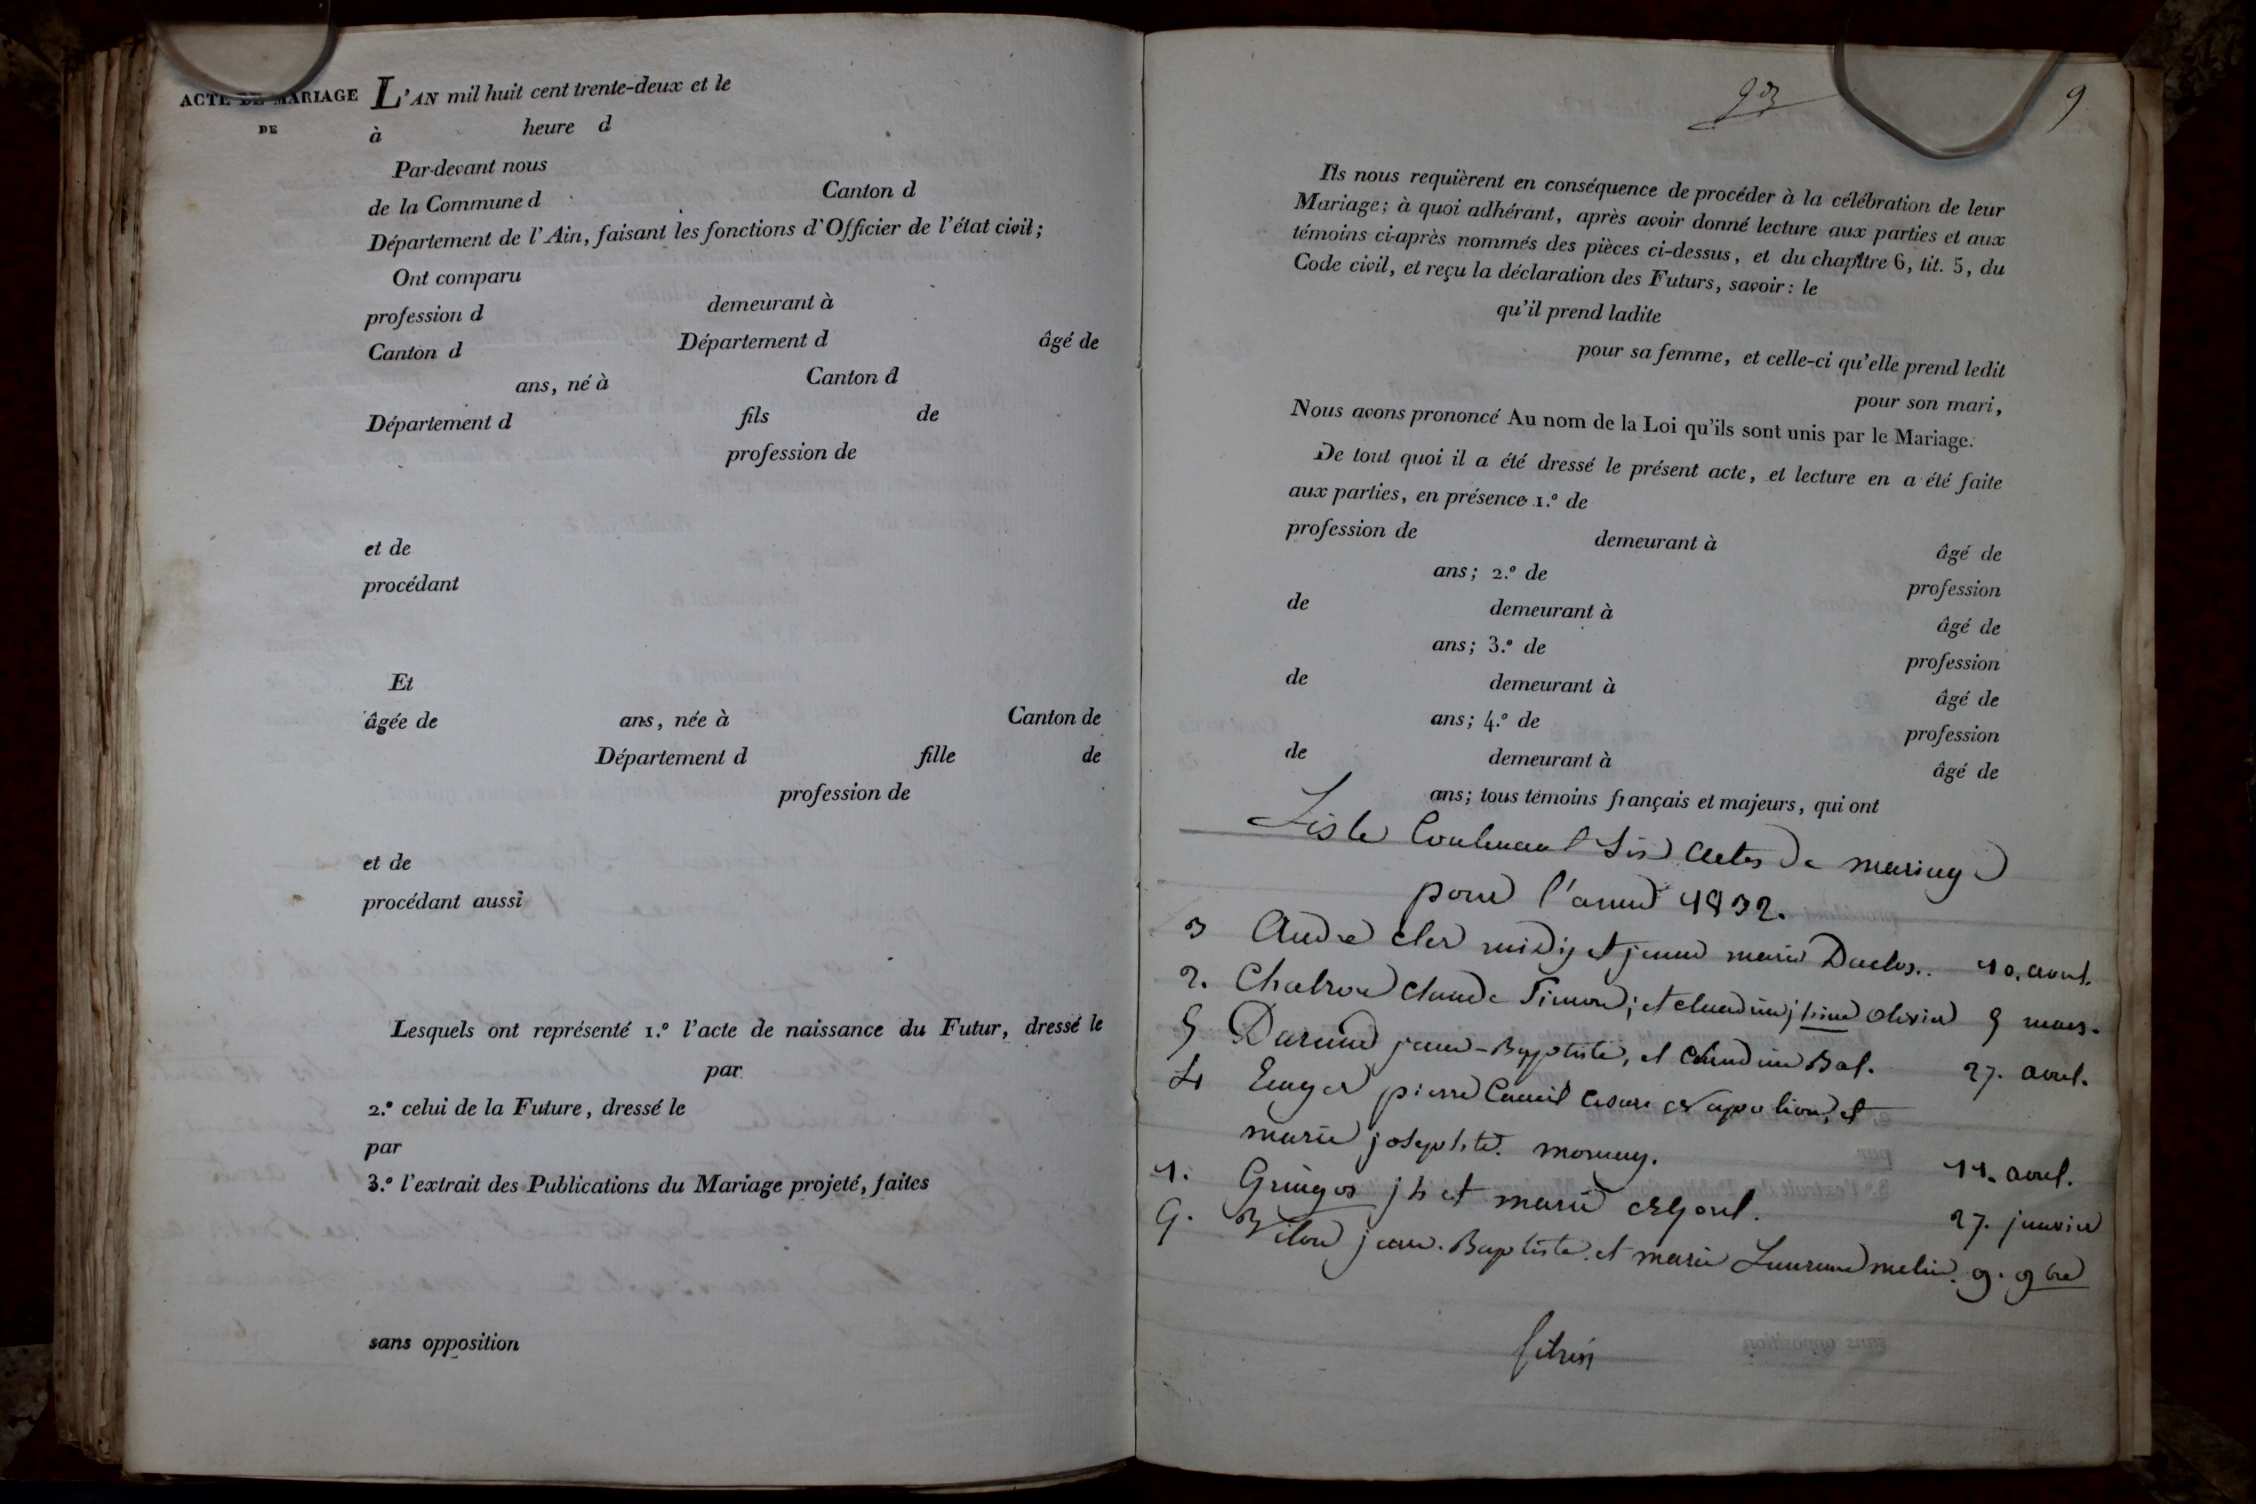 ACTE DE MARIAGE
DE
L'AN mil huit cent trente-deux et le
à heure d
Par-devant nous
de la Commune d Canton d
Département de l'Ain, faisant les fonctions d'Officier de l'état civil;
Ont comparu
profession d demeurant à
Canton d Département d âgé de
ans, né à Canton d
Département d fils de
profession de
et de
procédant
Et
âgée de ans, née à Canton de
Département d fille de
profession de
et de
procédant aussi
Lesquels ont représenté 1.º l'acte de naissance du Futur, dressé le
par
2.º celui de la Future, dressé le
par
3.º l'extrait des Publications du Mariage projeté, faites
sans opposition
9
Ils nous requièrent en conséquence de procéder à la célébration de leur
Mariage; à quoi adhérant, après avoir donné lecture aux parties et aux
témoins ci-après nommés des pièces ci-dessus, et du chapitre 6, tit. 5, du
Code civil, et reçu la déclaration des Futurs, savoir: le
qu'il prend ladite
pour sa femme, et celle-ci qu'elle prend ledit
pour son mari,
Nous avons prononcé Au nom de la Loi qu'ils sont unis par le Mariage.
De tout quoi il a été dressé le présent acte, et lecture en a été faite
aux parties, en présence 1.º de
profession de demeurant à âgé de
ans; 2.º de profession
de demeurant à âgé de
ans; 3.º de profession
de demeurant à âgé de
ans; 4.º de profession
de demeurant à âgé de
ans; tous témoins français et majeurs, qui ont
Liste Contenant Les actes de mariage
pour l'année 1832.
3 André cler et jeanne marie Duclos. 10. avril.
2. Claude Simon; et claudine olivier 9 mars.
5 jean-Baptiste, et claudine Bal. 27. avril.
4 pierre Camil Cesare Napolion, et
marie josephte. mornay. 11. avril.
1. Gringoz jh et marie 27. janvier
Vilon jean. Baptiste. et marie Laurence melin. 9. 9bre